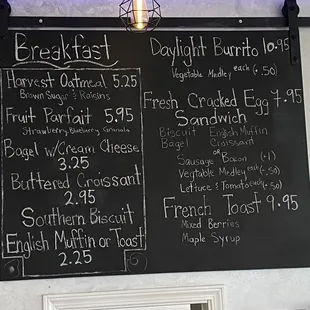 Breakfast
Harvest Oatmeal 5.25
Brown Sugar & Raisins
Fruit Parfait 5.95
Strawberry, Blueberry Granola
Bagel w/Cream Cheese
3.25
Buttered Croissant
2.95
Southern Biscuit
English Muffin or Toast
2.25
Daylight Burrito 10.95
Vegetable Medley each (+.50)
Fresh Cracked Egg 7.95
Sandwich
Biscuit English Muffin
Bagel Croissant
or
Sausage Bacon (+1)
Vegetable Medley each (+.50)
Lettuce & Tomato each (+.50)
French Toast 9.95
Mixed Berries
Maple Syrup